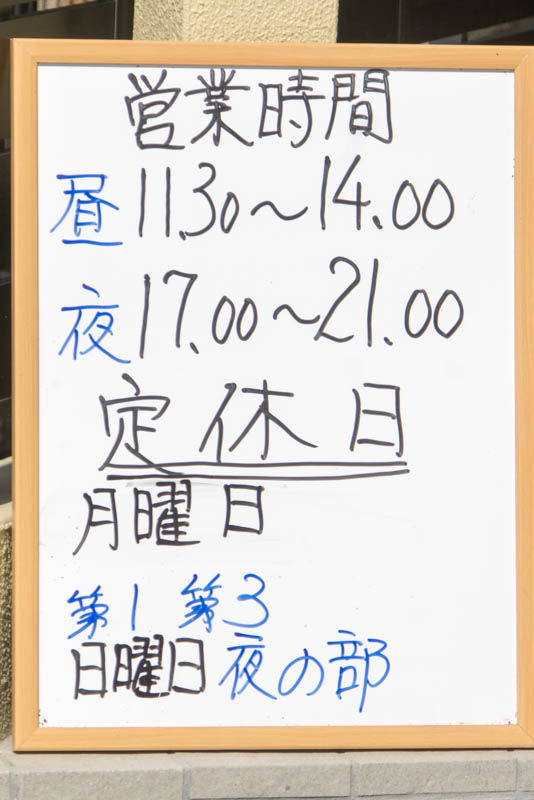 営業時間
昼 11.30～14.00
夜 17.00～21.00
定休日
月曜日
第1 第3
日曜日 夜の部